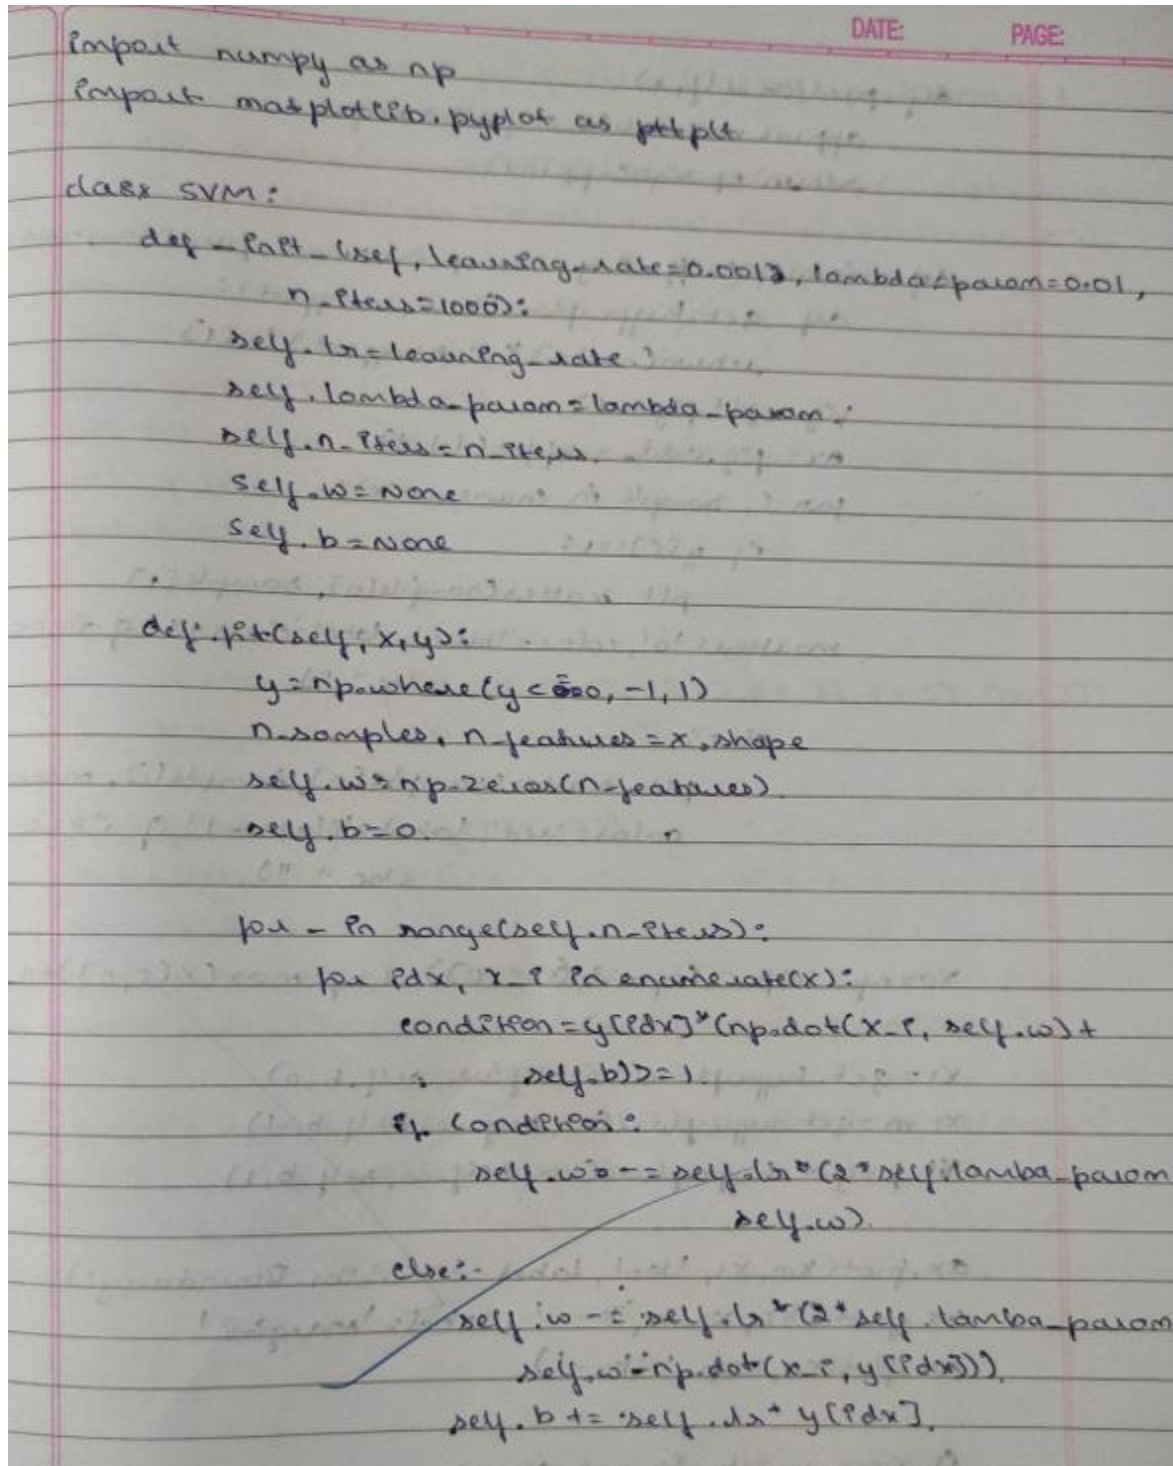 DATE: PAGE:
import numpy as np
import matplotlib.pyplot as plt
class SVM:
def _init_(sef, learning_rate=0.001, lambda_param=0.01,
n_iters=1000):
self.lr=learning_rate
self.lambda_param=lambda_param
self.n_iters=n_iters
self.w=None
self.b=None
def fit(self, x, y):
y=np.where(y<=0, -1, 1)
n_samples, n_features=x.shape
self.w=np.zeros(n_features)
self.b=0
for _ in range(self.n_iters):
for idx, x_i in enumerate(x):
condition=y[idx]*(np.dot(x_i, self.w)+
self.b)>=1
if condition:
self.w-=self.lr*(2*self.lamba_param
self.w)
else:
self.w-=self.lr*(2*self.lamba_param
self.w-np.dot(x_i, y[idx]))
self.b+=self.lr*y[idx]